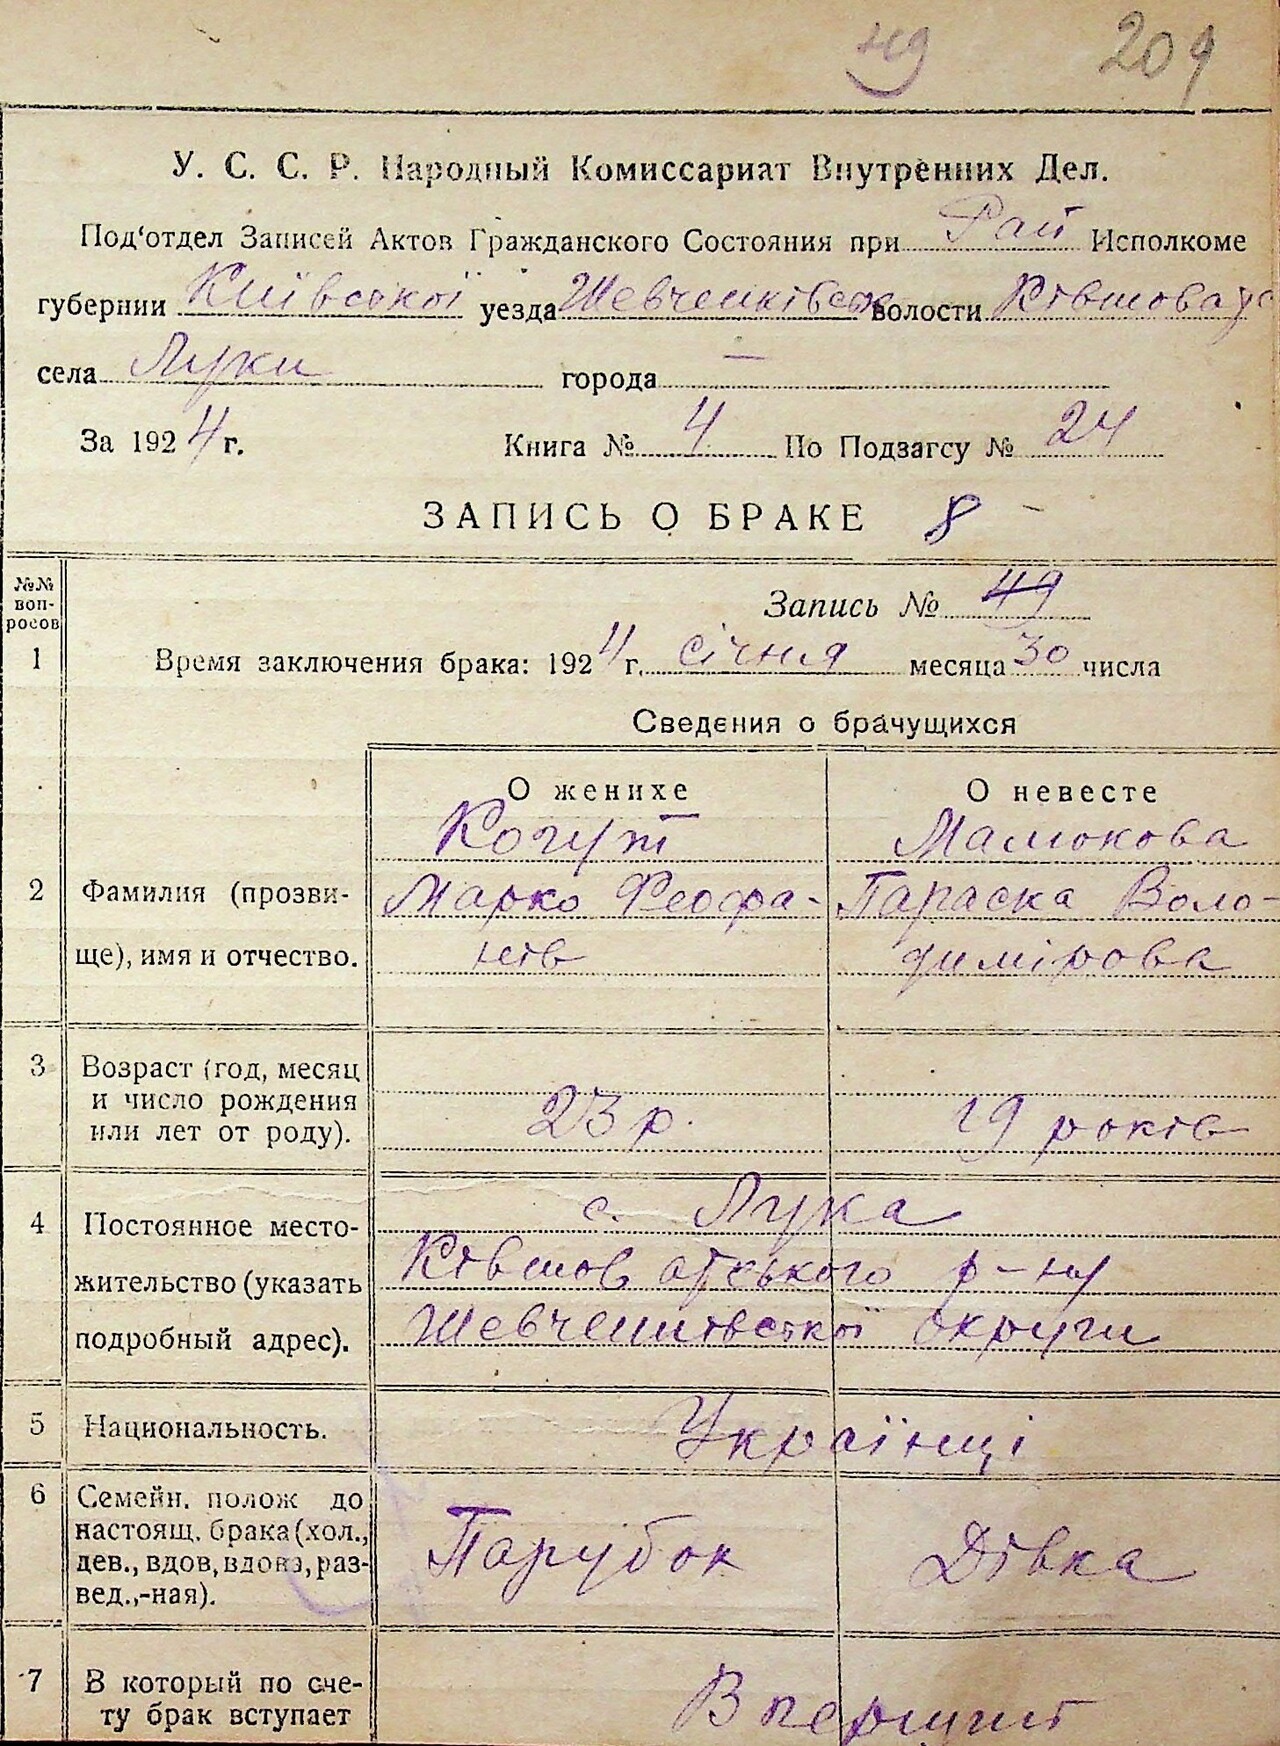 49 209
У. С. С. Р. Народный Комиссариат Внутренних Дел.
Под'отдел Записей Актов Гражданского Состояния при Рай Исполкоме
губернии Київської уезда Шевченківськ волости Ківшоватс
села Луки города —
За 1924 г. Книга № 4 По Подзагсу № 24
ЗАПИСЬ О БРАКЕ 8
№№ вопросов
Запись № 49
1 Время заключения брака: 1924 г. січня месяца 30 числа
Сведения о брачущихся
О женихе О невесте
Когут Мамокова
2 Фамилия (прозви- Марко Феофа- Параска Воло-
ще), имя и отчество. нів димірова
3 Возраст (год, месяц
и число рождения 23 р. 19 років
или лет от роду).
с. Лука
4 Постоянное место- Ківшоватського р-ну
жительство (указать Шевченківської округи
подробный адрес).
5 Национальность. Українці
6 Семейн. полож до
настоящ. брака (хол., Парубок Дівка
дев., вдов, вдова, раз-
вед.,-ная).
7 В который по сче- Вперше
ту брак вступает